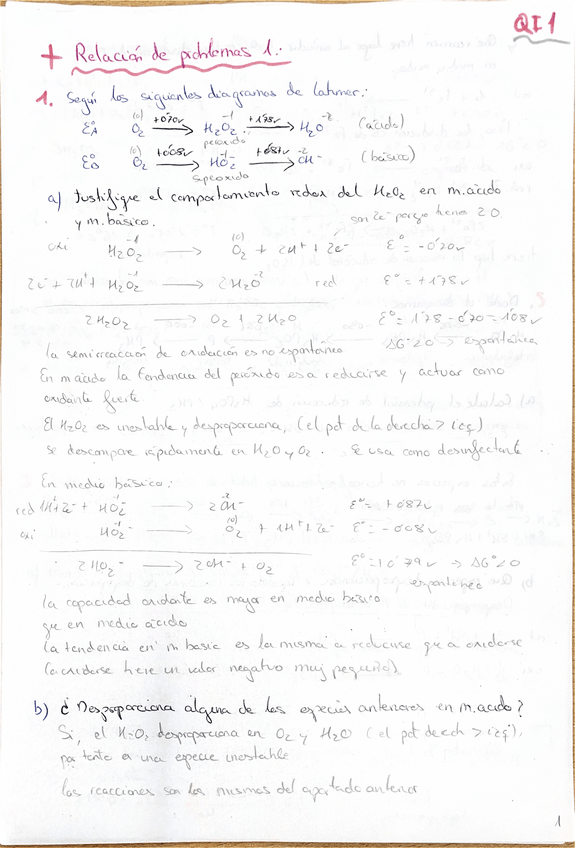 QI 1
+ Relación de problemas 1:
1. Según los siguientes diagramas de latimer:
ε°A O₂ (0) +0'70v → H₂O₂ -1 +1'78v → H₂O -2 (ácido)
peróxido
ε°B O₂ (0) +0'08v → HO₂⁻ -1 +0'87v → OH⁻ -2 (básico)
a) Justifique el comportamiento redox del H₂O₂ en m. ácido
y m. básico.
son 2e⁻ porque tienes 2 O
oxi H₂O₂ -1 → O₂ (0) + 2H⁺ + 2e⁻ ε° = -0'70v
2e⁻ + 2H⁺ + H₂O₂ -1 → 2H₂O -2 red ε° = +1'78v
2H₂O₂ → O₂ + 2H₂O ε° = 1'78 - 0'70 = 1'08v
la semireacción de oxidación es no espontánea ΔG°<0 → espontánea
En m ácido la tendencia del peróxido es a reducirse y actuar como
oxidante fuerte.
El H₂O₂ es inestable y desproporciona, (el pot de la derecha > izq)
se descompone rápidamente en H₂O y O₂. Se usa como desinfectante.
En medio básico:
red 1H⁺+2e⁻ + HO₂⁻ -1 → 2OH⁻ -2 ε° = +0'87v
oxi HO₂⁻ -1 → O₂ (0) + 1H⁺ + 2e⁻ ε° = -0'08v
2HO₂⁻ → 2OH⁻ + O₂ ε° = 0'79v → ΔG°<0
espontánea
la capacidad oxidante es mayor en medio básico
que en medio ácido
la tendencia en m basic es la misma a reducirse que a oxidarse
(a oxidarse tiene un valor negativo muy pequeño)
b) ¿Desproporciona alguna de las especies anteriores en m. ácido?
Si, el H₂O₂ desproporciona en O₂ y H₂O (el pot derech > izq),
por tanto es una especie inestable
las reacciones son las mismas del apartado anterior
1